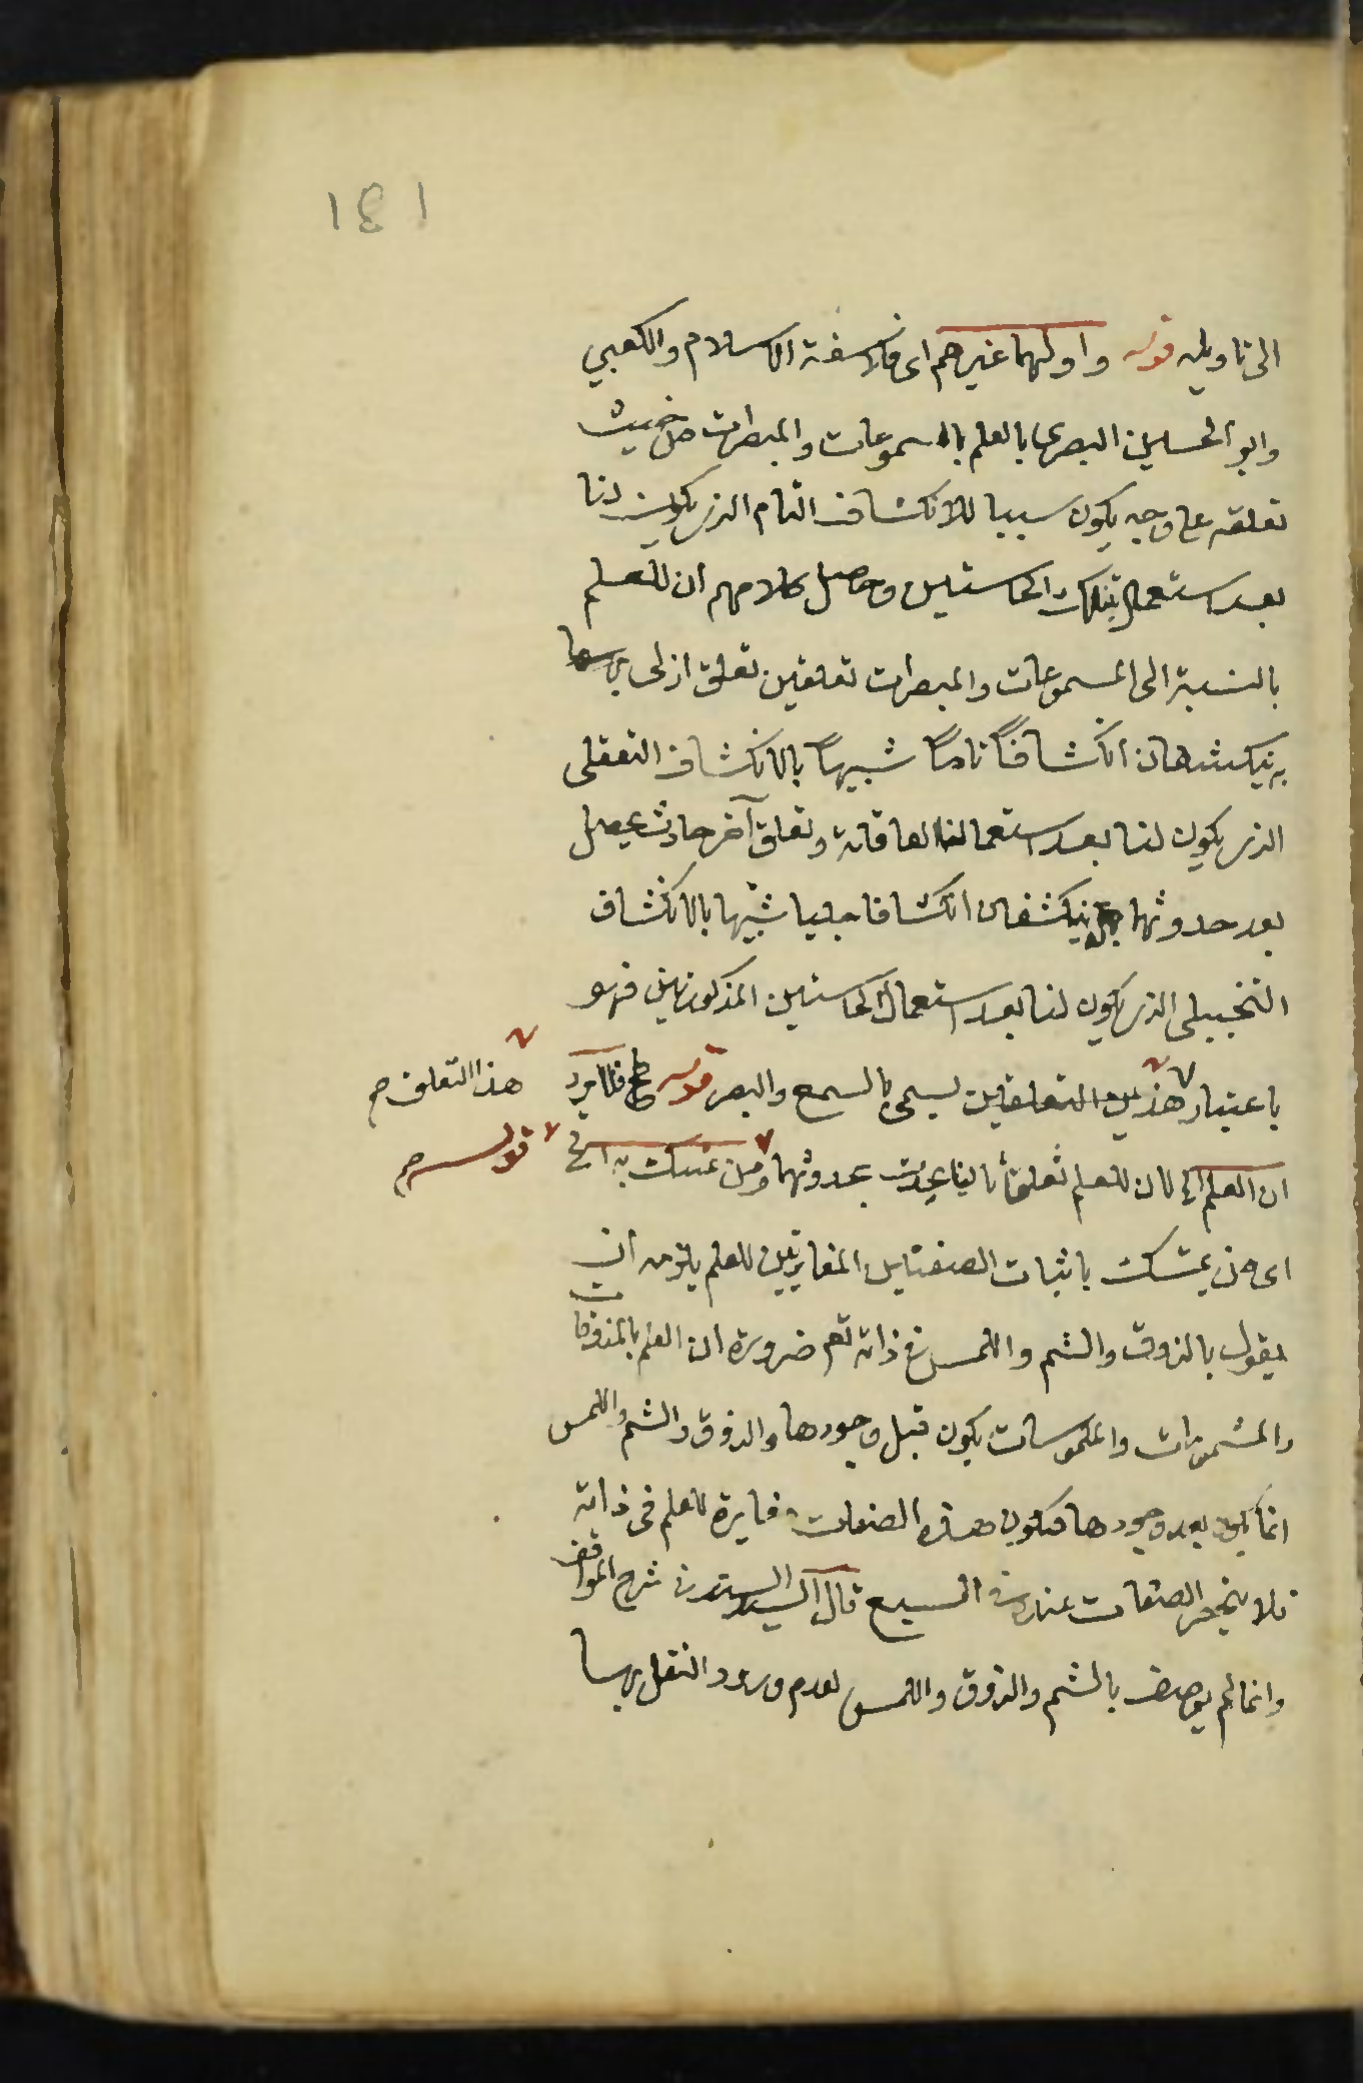 ١٤١
الى تاويله قوله واولهما غيرهم اى فلاسفة الاسلام والكعبي
وابو الحسين البصرى بالعلم بالمسموعات والمبصرات من حيث
تعلقه على وجه يكون سببا للانكشاف التام الذى يكون لنا
بعد استعمال تلك الحاستين وحاصل كلامهم ان للعلم
بالنسبة الى المسموعات والمبصرات تعلقين تعلق ازلى بهما
به ينكشفان انكشافاً تاماً شبيهاً بالانكشاف التعقلى
الذى يكون لنا بعد استعمالنا العاقلة وتعلق آخر حادث يحصل
بعد حدوثهما ينكشفان انكشافا جليا شبيها بالانكشاف
التخييلى الذى يكون لنا بعد استعمال الحاستين المذكورتين فهو
باعتبار هذين التعلقين يسمى بالسمع والبصر قوله فلا يرد
هذا التعلق صح
ان العلم الخ لان للعلم تعلقاً ثانيا يحدث بحدوثهما ومن تمسك به الخ
قوله صح
اى من يتمسك باثبات الصفتين المغايرتين للعلم يلزمه ان
يقول بالذوق والشم واللمس فى ذاته تعم ضرورة ان العلم بالمذوقات
والمشمومات والملموسات يكون قبل وجودها والذوق والشم واللمس
انما يكون بعد وجودها فيكون هذه الصفات مغايرة للعلم فى ذاته
فلا ينحصر الصفات عنده فى السبع قال السيد السند فى شرح المواقف
وانما لم يوصف بالشم والذوق واللمس لعدم ورود النقل بهما